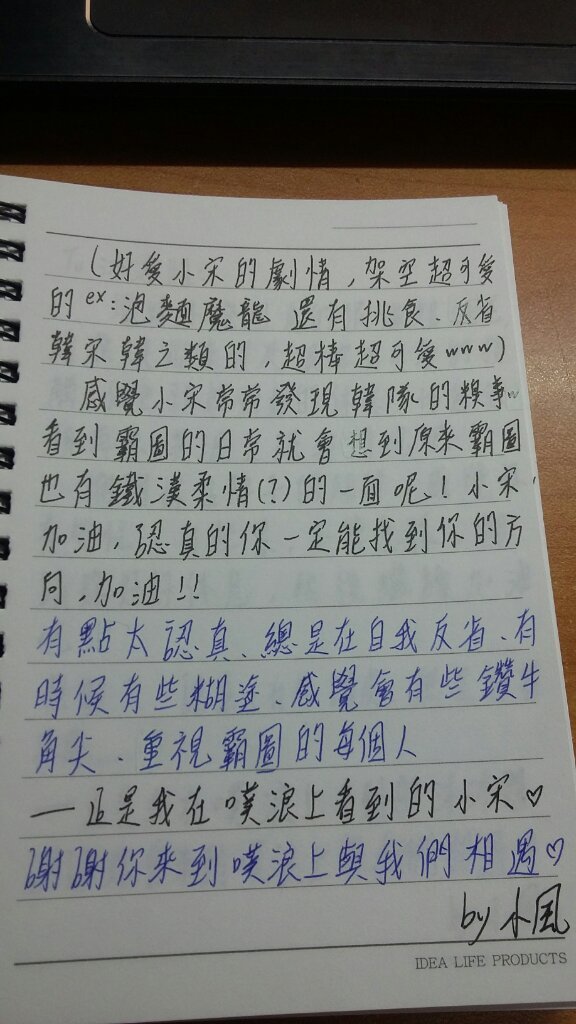 (好愛小宋的劇情,架空超可愛
的ex:泡麵魔龍 還有挑食、反省
韓宋韓之類的,超棒超可愛www)
感覺小宋常常發現韓隊的糗事w
看到霸圖的日常就會想到原來霸圖
也有鐵漢柔情(?)的一面呢!小宋,
加油,認真的你一定能找到你的方
向,加油!!
有點太認真、總是在自我反省、有
時候有些糊塗、感覺會有些鑽牛
角尖、重視霸圖的每個人
——正是我在噗浪上看到的小宋♡
謝謝你來到噗浪上與我們相遇♡
by 小風
IDEA LIFE PRODUCTS